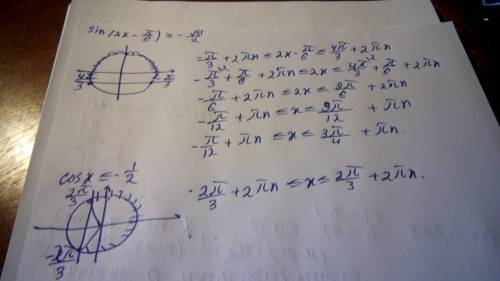 sin(2x - π/6) = - √3/2
- π/3 + 2πn ≤ 2x - π/6 ≤ 4π/3 + 2πn
- π/3 + π/6 + 2πn ≤ 2x ≤ 4π/3 + π/6 + 2πn
- π/6 + 2πn ≤ 2x ≤ 9π/6 + 2πn
- π/12 + πn ≤ x ≤ 9π/12 + πn.
- π/12 + πn ≤ x ≤ 3π/4 + πn.
4π/3
- π/3
cos x ≤ - 1/2
2π/3
- 2π/3 + 2πn ≤ x ≤ 2π/3 + 2πn.
-2π/3